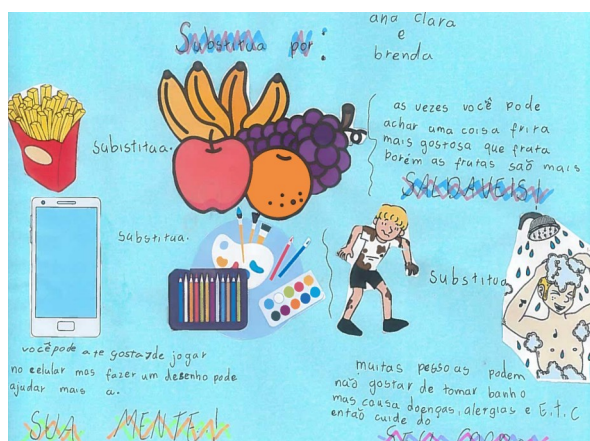 ana clara
e
brenda
Substitua por:
subistitua.
as vezes você pode
achar uma coisa frita
mais gostosa que fruta
porém as frutas são mais
SALDAVEIS!
substitua.
substitua
você pode a te gostar de jogar
no celular mas fazer um desenho pode
ajudar mais a.
SUA MENTE!
muitas pessoas podem
não gostar de tomar banho
mas causa doenças, alergias e E.T.C
então cuide do
SEU CORPO